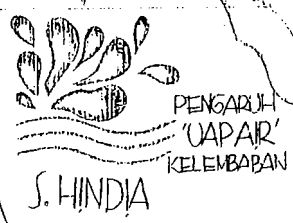 PENGARUH
'UAP AIR'
KELEMBABAN
S. HINDIA